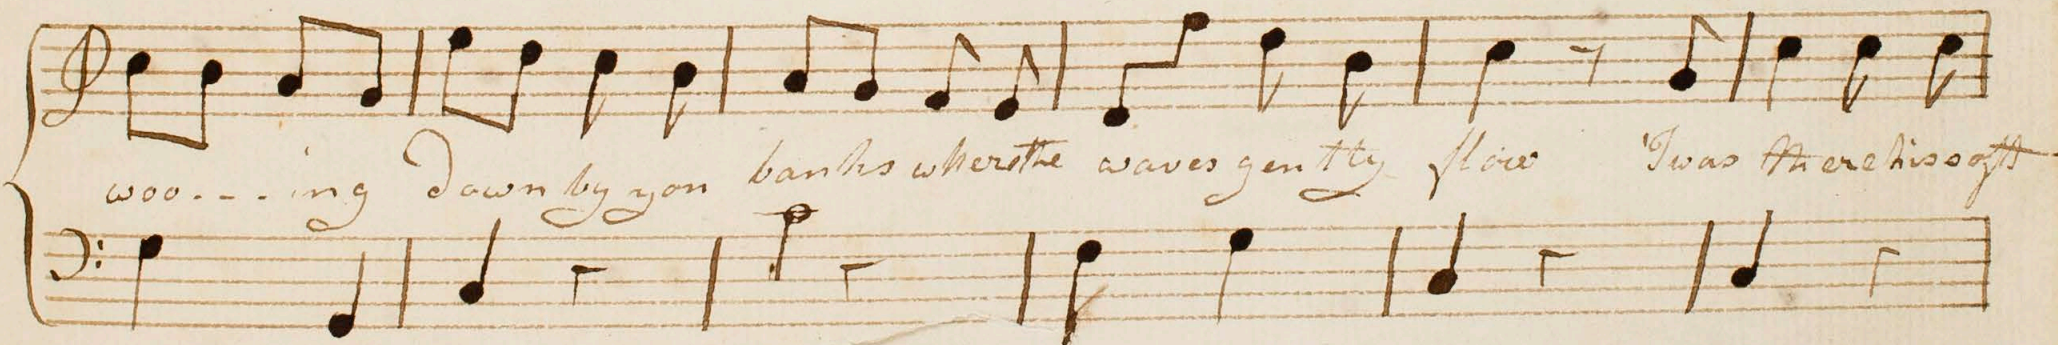 woo....ing Down by yon banks where the waves gently flow 'Twas there his soft